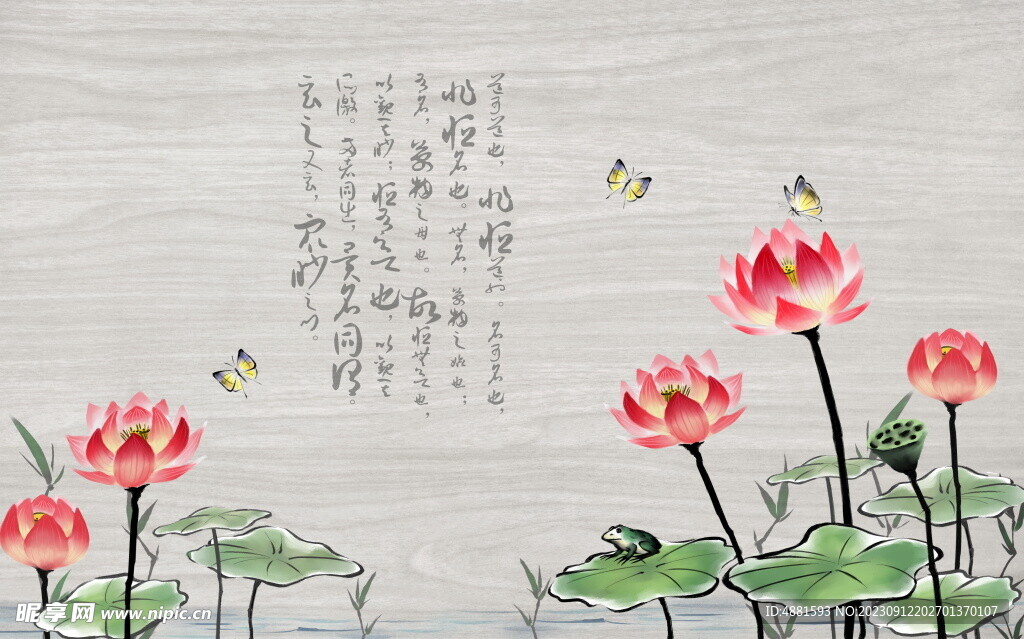 道可道也，非恒道也。名可名也，
非恒名也。無名，萬物之始也；
有名，萬物之母也。故恒無欲也，
以觀其妙；恒有欲也，以觀其
所徼。兩者同出，異名同謂。
玄之又玄，眾妙之門。
昵享网 www.nipic.cn
ID:4881593 NO:20230912202701370107